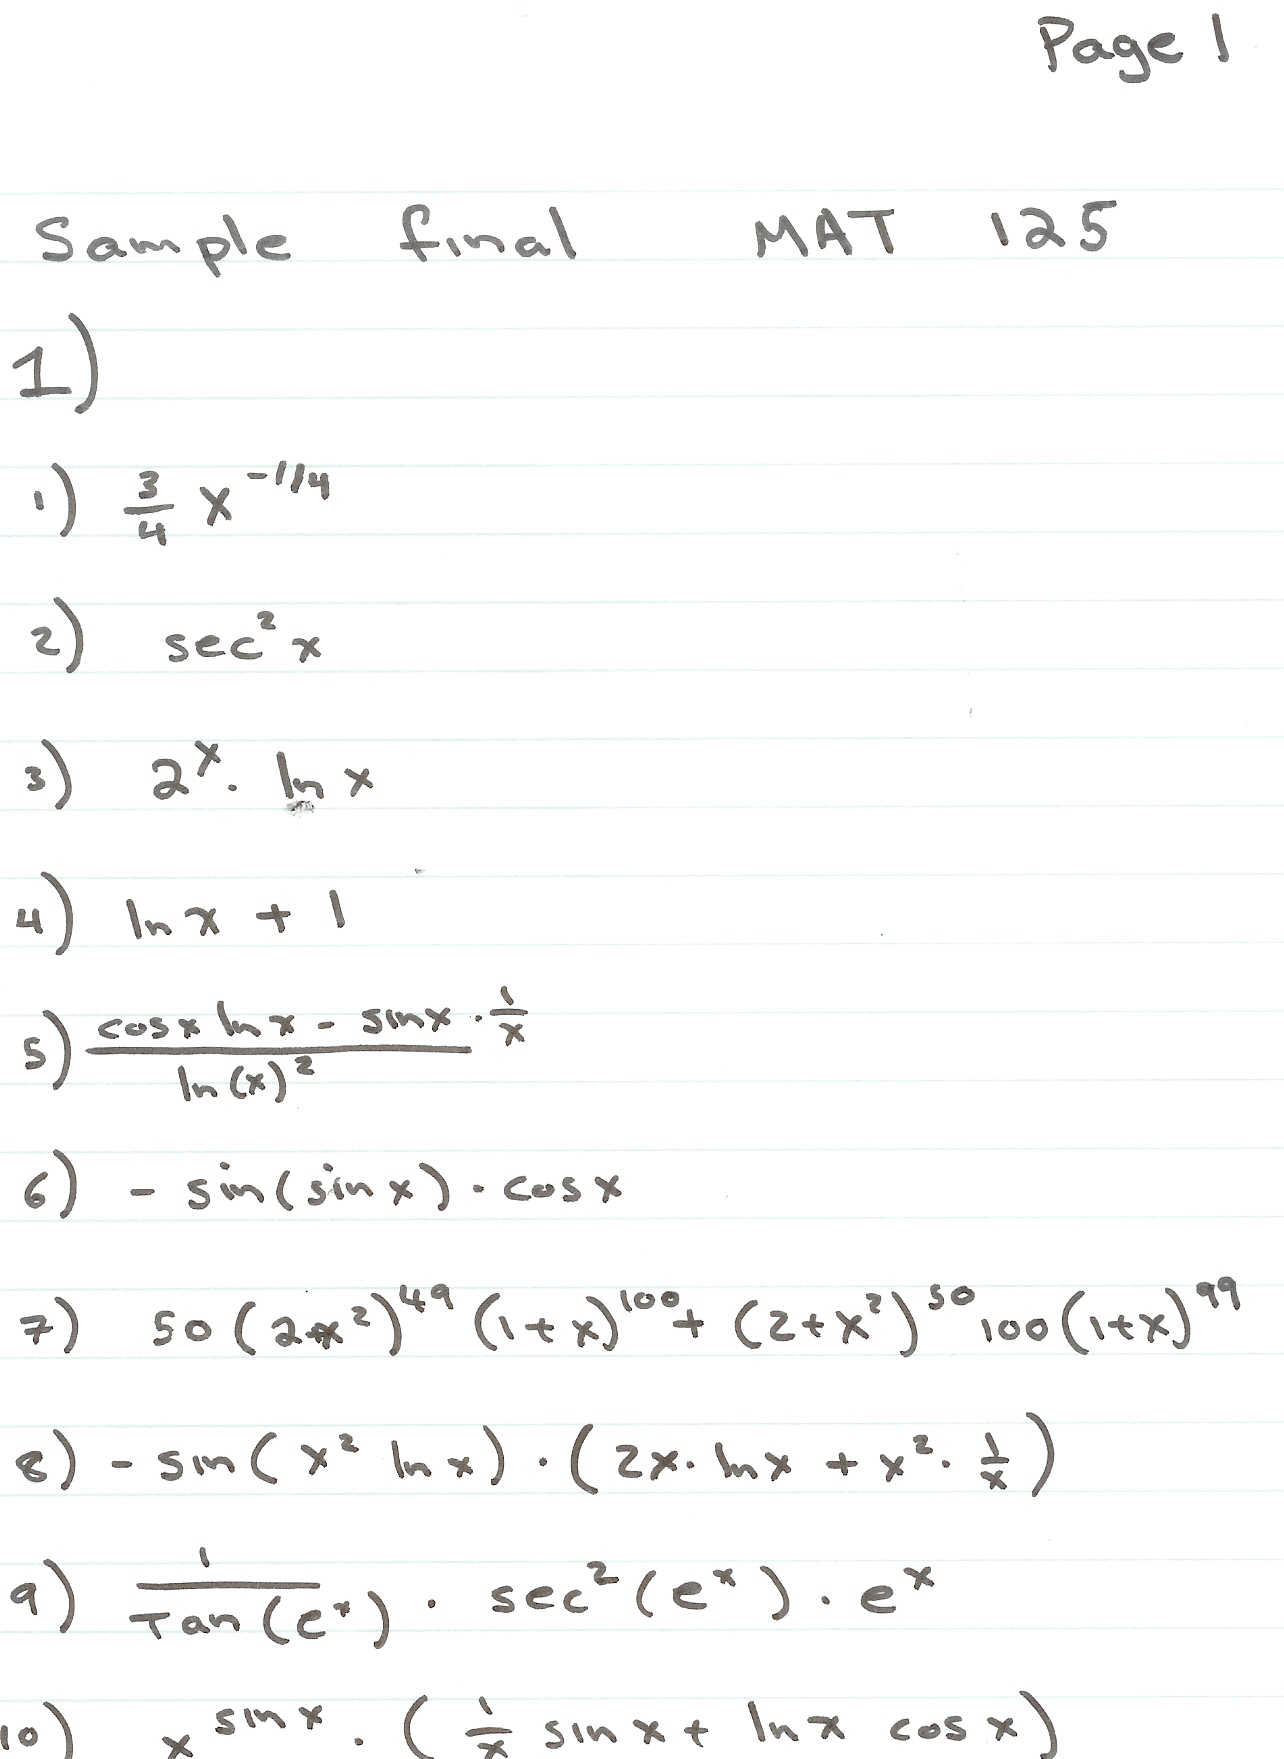 Page 1
Sample final MAT 125
1)
1) 3/4 x^-1/4
2) sec² x
3) 2^x · ln x
4) ln x + 1
5) (cos x ln x - sin x · 1/x) / ln(x)²
6) - sin(sin x) · cos x
7) 50(2+x²)^49 (1+x)^100 + (2+x²)^50 100(1+x)^99
8) - sin(x² ln x) · (2x · ln x + x² · 1/x)
9) 1/Tan(e^x) · sec²(e^x) · e^x
10) x^sin x · (1/x sin x + ln x cos x)